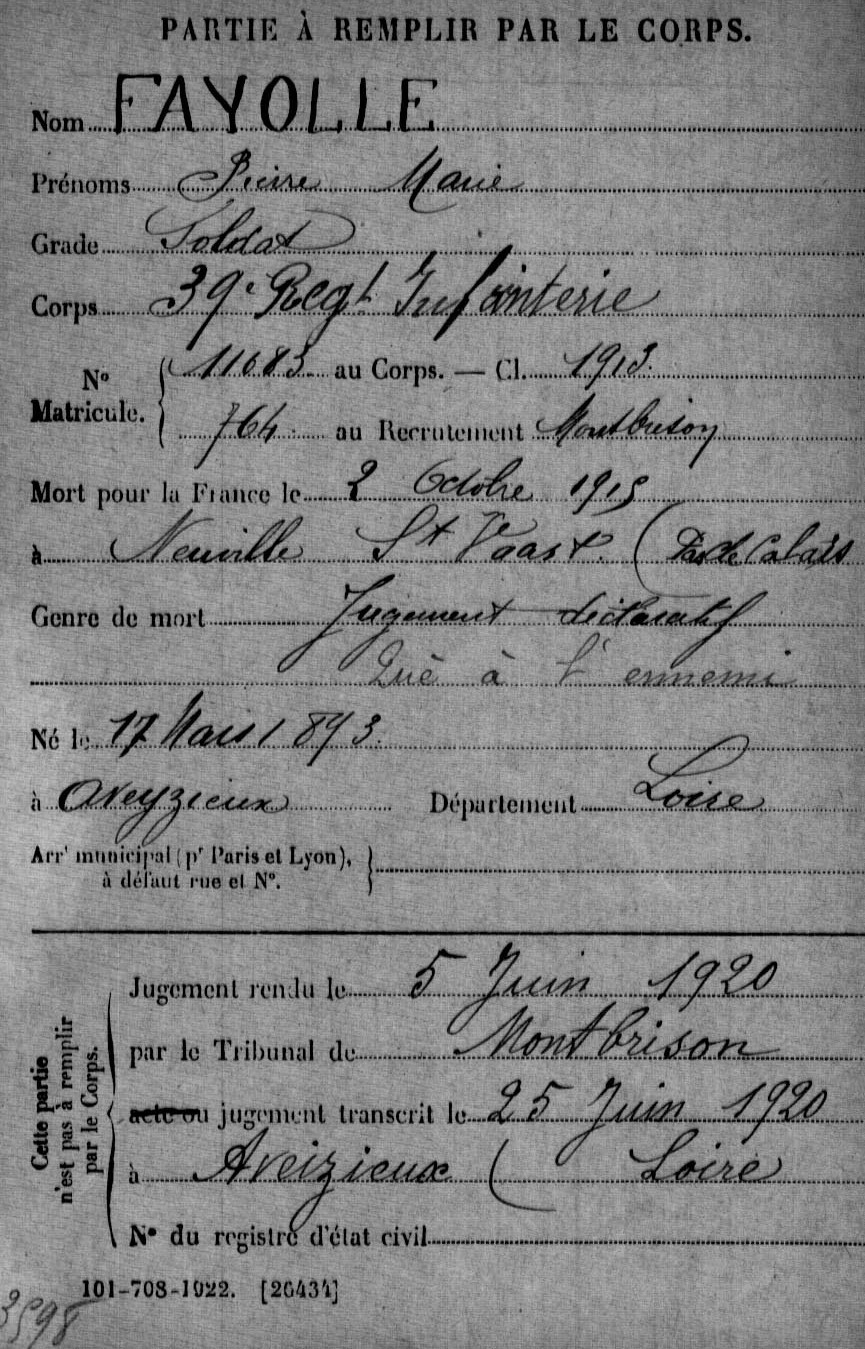 PARTIE À REMPLIR PAR LE CORPS.
Nom FAYOLLE
Prénoms Pierre Marie
Grade Soldat
Corps 39e Regt Infanterie
No Matricule. 11683 au Corps. — Cl. 1913.
764 au Recrutement Montbrison
Mort pour la France le 2 Octobre 1915
à Neuville St Vaast. (Pas de Calais
Genre de mort Jugement déclaratif
Tué à l'ennemi
Né le 17 Mars 1893.
à Aveyzieux Département Loire
Arrt municipal (pr Paris et Lyon),
à défaut rue et No.
Cette partie n'est pas à remplir par le Corps.
Jugement rendu le 5 Juin 1920
par le Tribunal de Montbrison
acte ou jugement transcrit le 25 Juin 1920
à Aveizieux ( Loire
No du registre d'état civil
101-708-1922. [26434]
3598